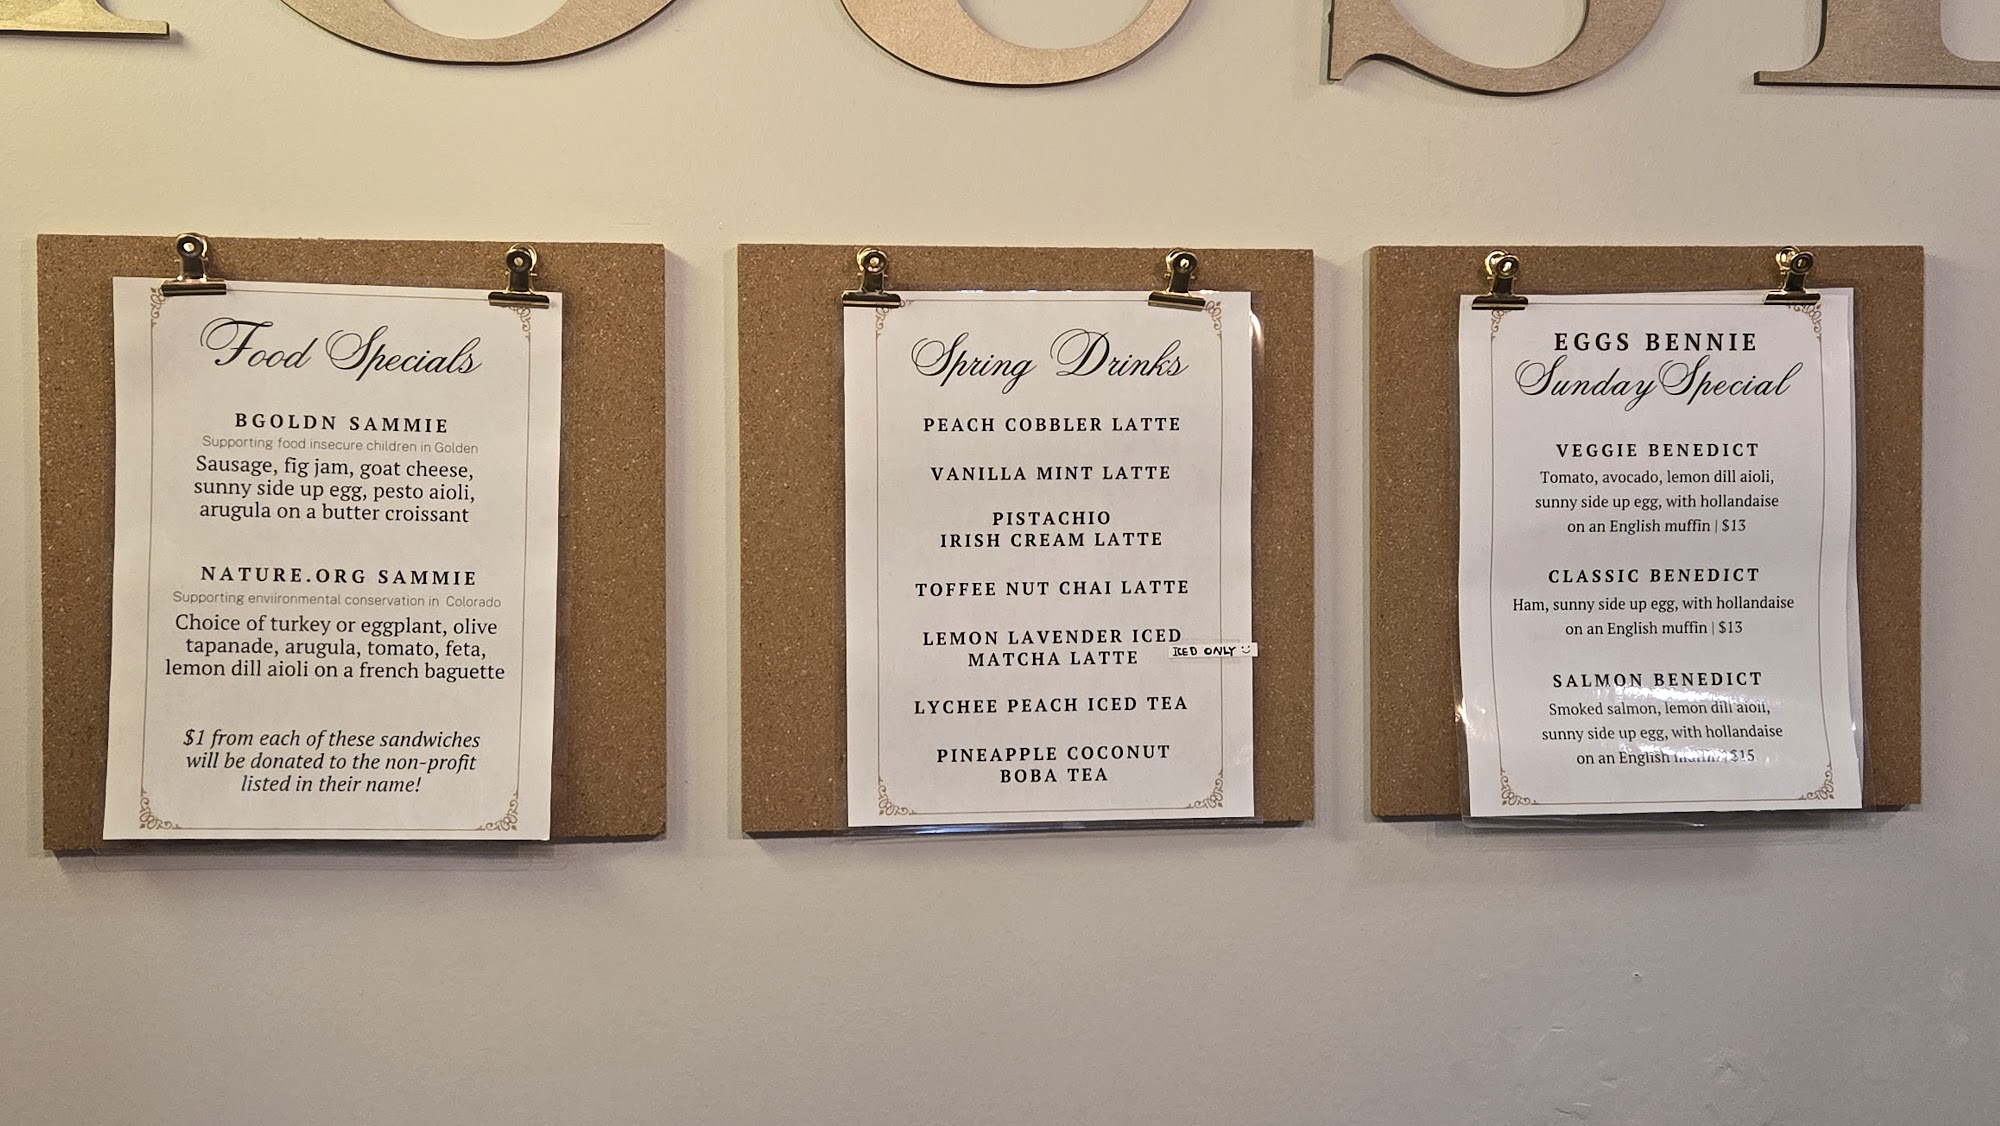 Food Specials
BGOLDN SAMMIE
Supporting food insecure children in Golden
Sausage, fig jam, goat cheese,
sunny side up egg, pesto aioli,
arugula on a butter croissant
NATURE.ORG SAMMIE
Supporting enviironmental conservation in Colorado
Choice of turkey or eggplant, olive
tapanade, arugula, tomato, feta,
lemon dill aioli on a french baguette
$1 from each of these sandwiches
will be donated to the non-profit
listed in their name!
Spring Drinks
PEACH COBBLER LATTE
VANILLA MINT LATTE
PISTACHIO
IRISH CREAM LATTE
TOFFEE NUT CHAI LATTE
LEMON LAVENDER ICED
MATCHA LATTE
ICED ONLY
LYCHEE PEACH ICED TEA
PINEAPPLE COCONUT
BOBA TEA
EGGS BENNIE
Sunday Special
VEGGIE BENEDICT
Tomato, avocado, lemon dill aioli,
sunny side up egg, with hollandaise
on an English muffin | $13
CLASSIC BENEDICT
Ham, sunny side up egg, with hollandaise
on an English muffin | $13
SALMON BENEDICT
Smoked salmon, lemon dill aioli,
sunny side up egg, with hollandaise
on an English muffin | $15